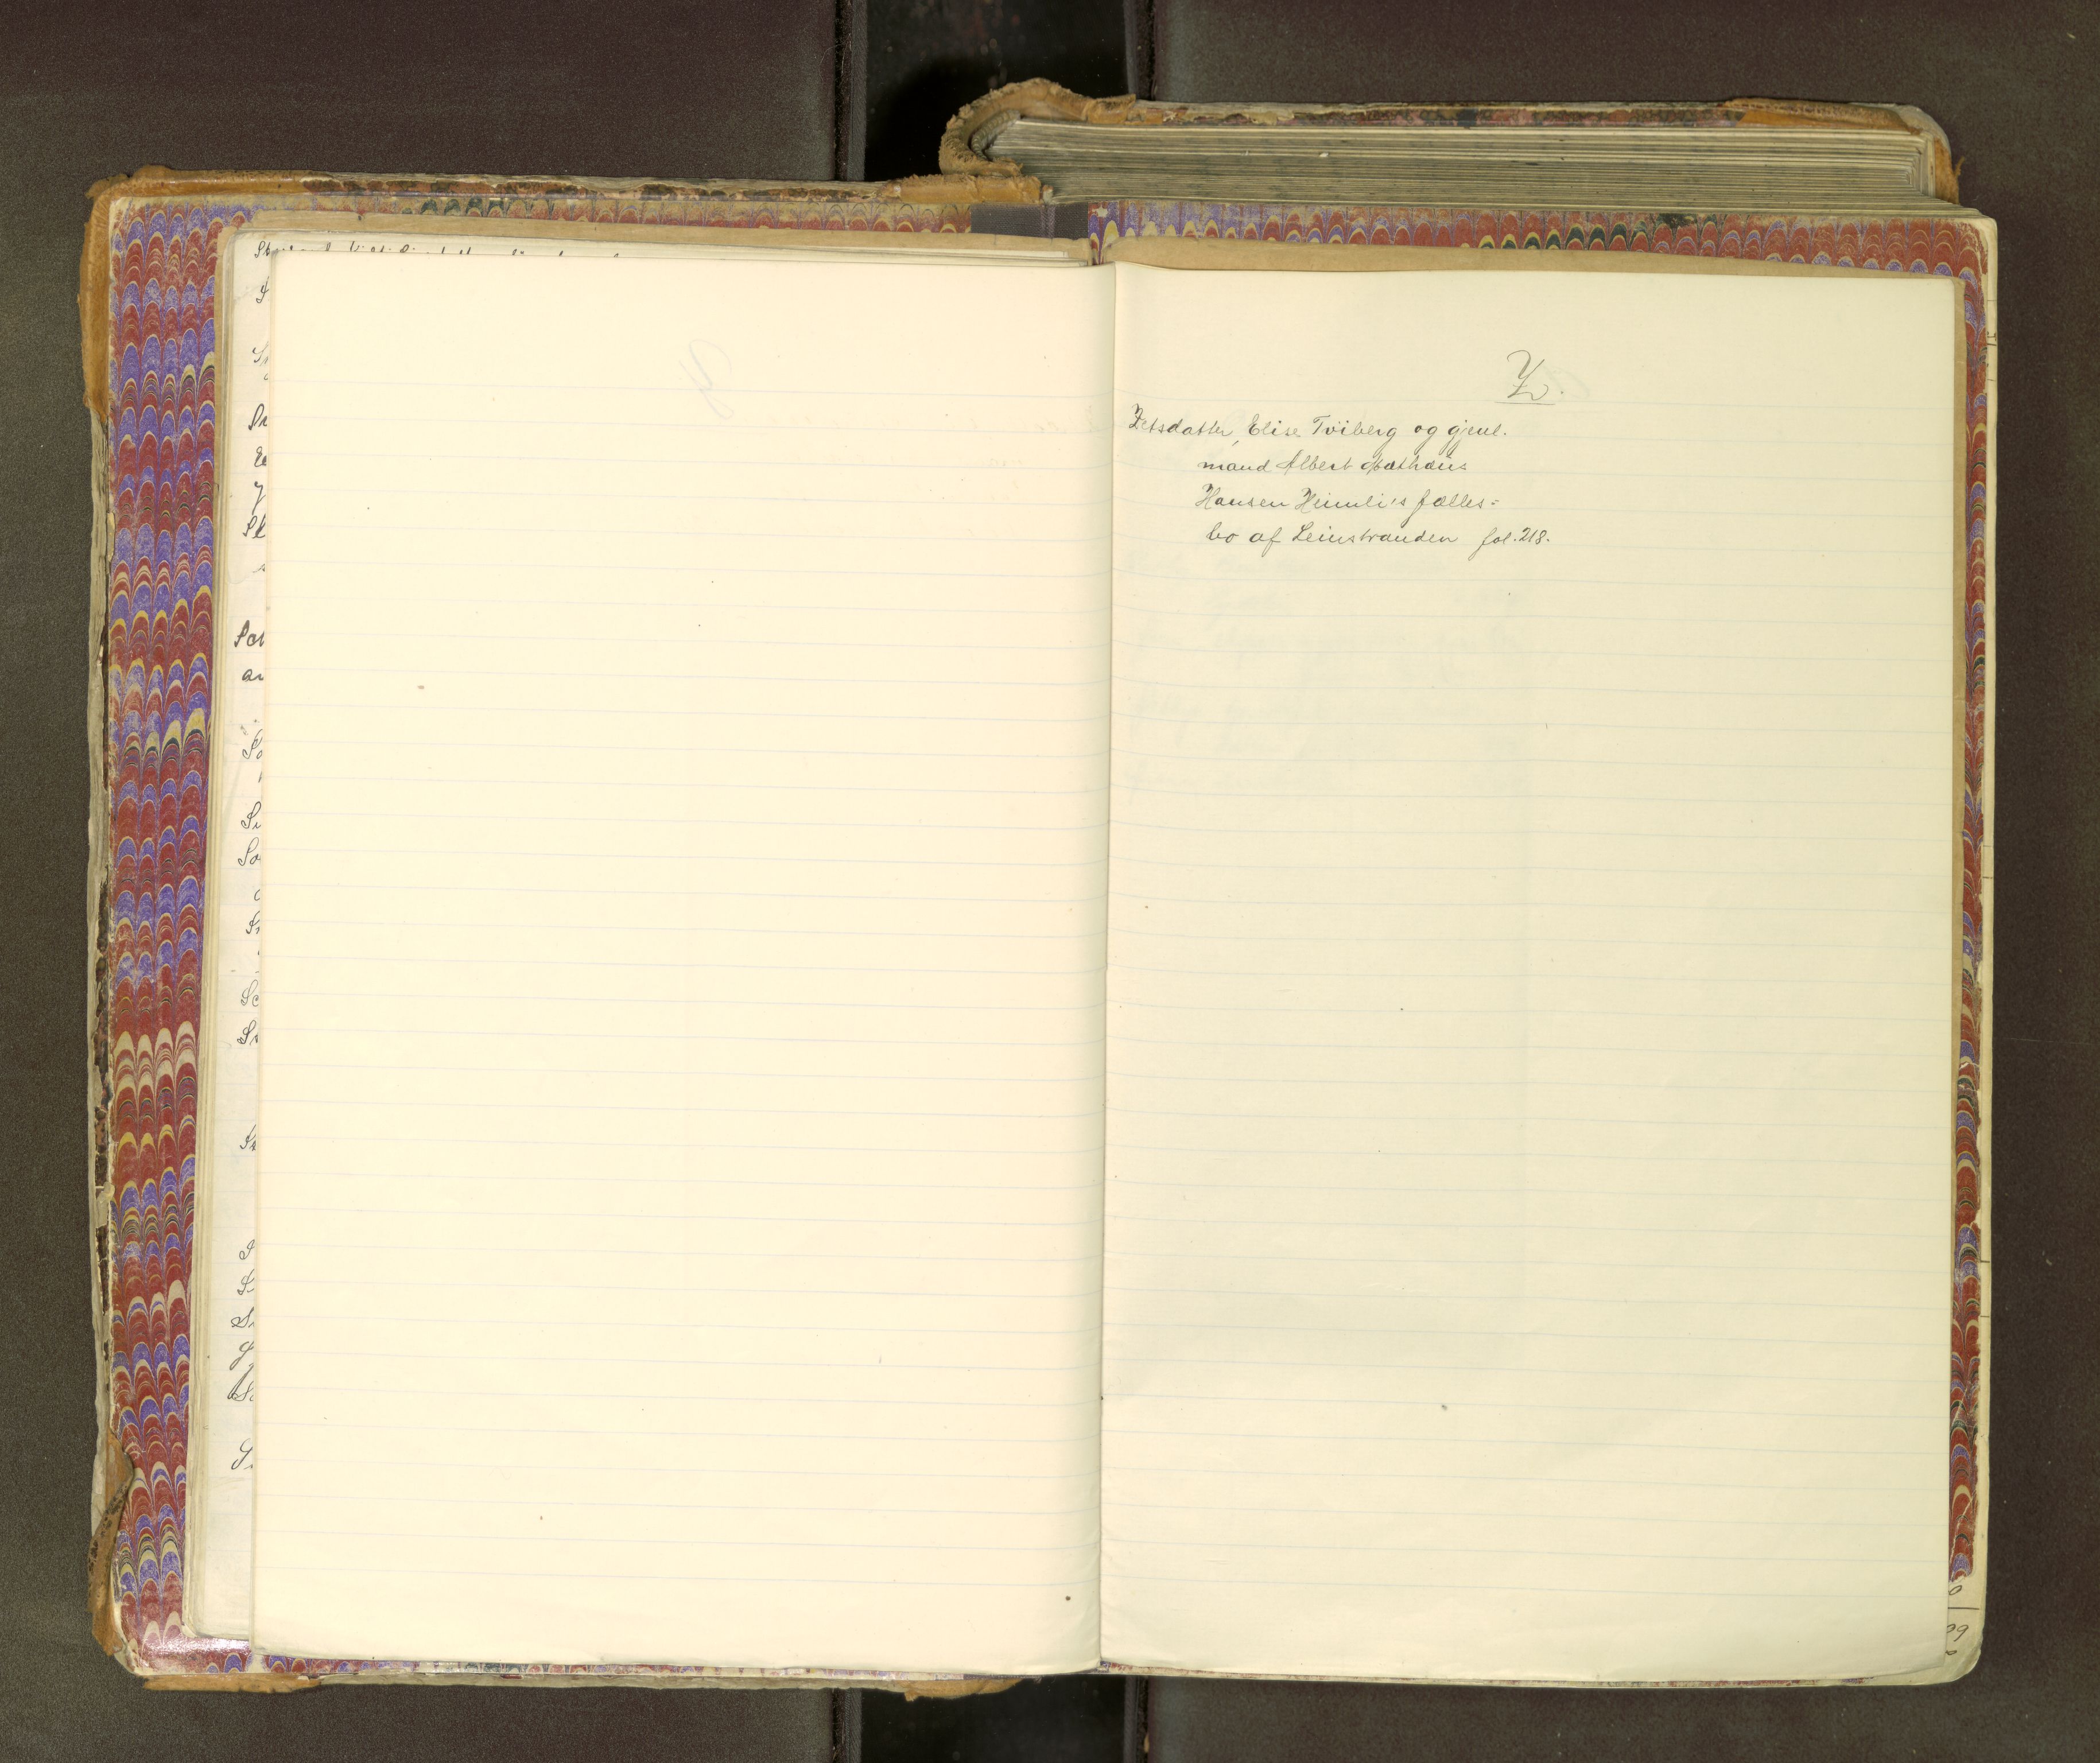 Z.
Zetsdatter, Elise Tviberg og gjenl.
mand Albert Mathæus
Hansen Heimli's fælles=
bo af Leinstranden fol. 218.